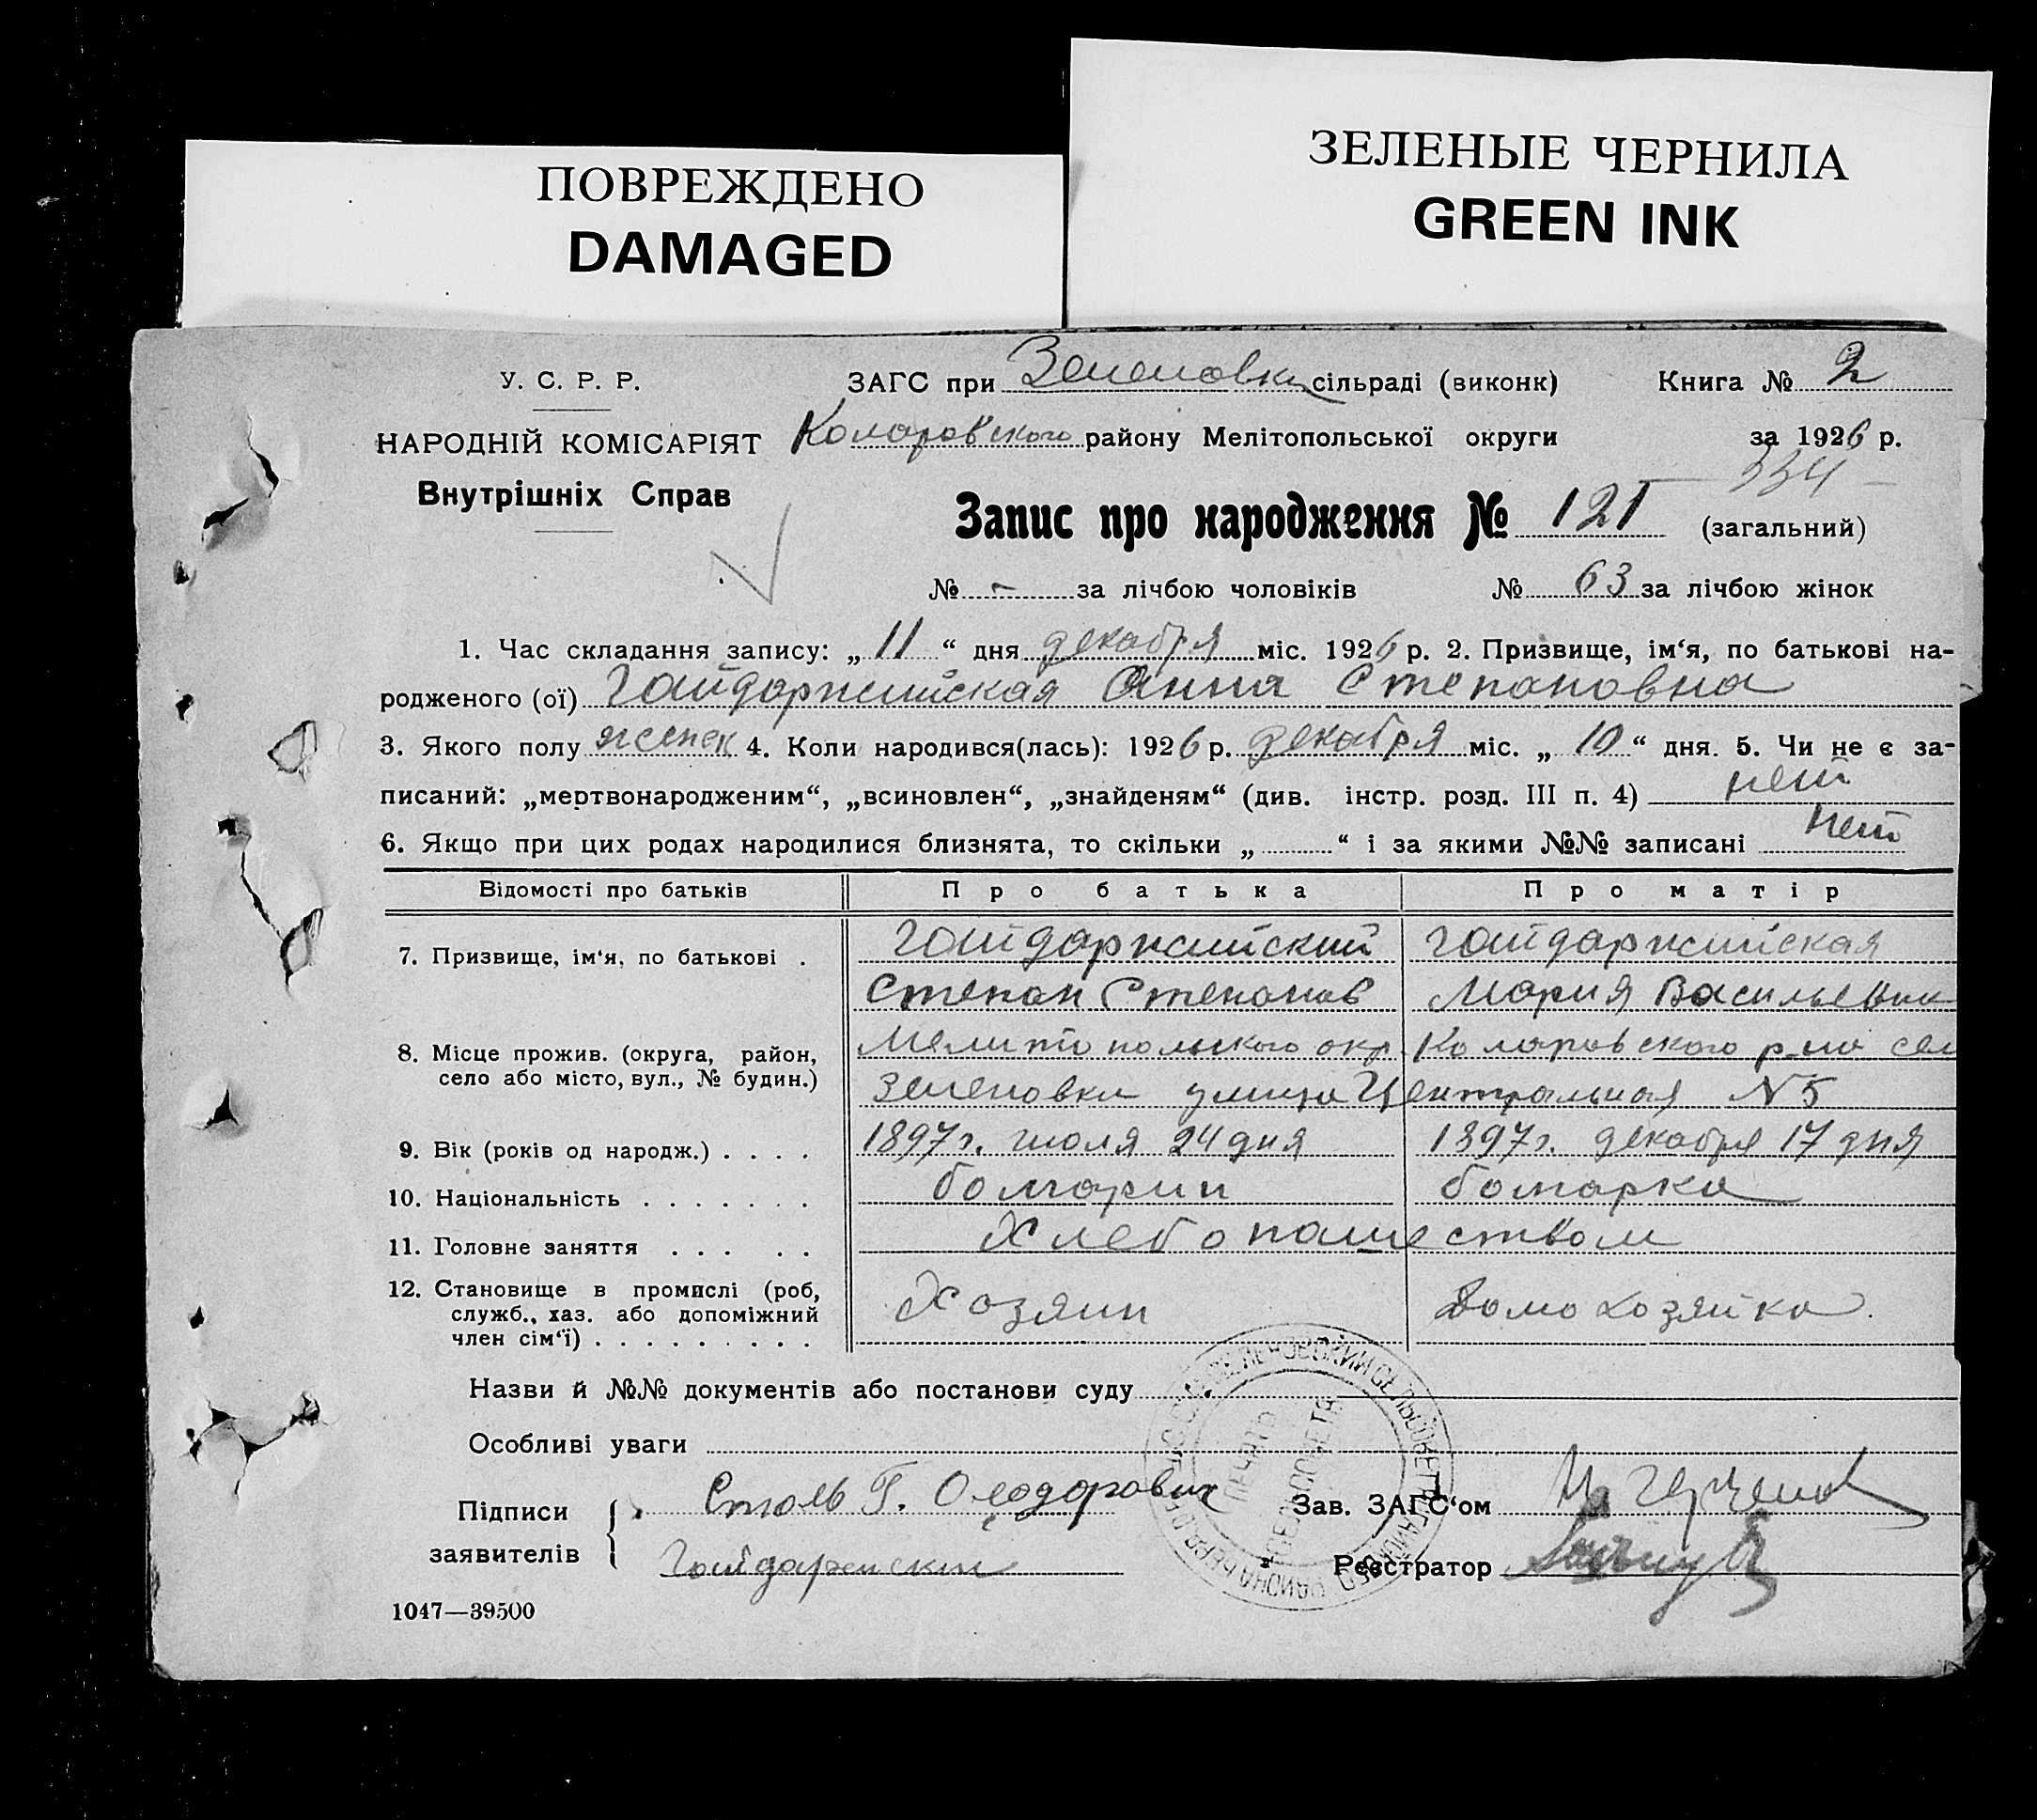 ПОВРЕЖДЕНО
DAMAGED
ЗЕЛЕНЫЕ ЧЕРНИЛА
GREEN INK
У. С. Р. Р.
НАРОДНІЙ КОМІСАРІЯТ
Внутрішніх Справ
ЗАГС при Зеленовки сільраді (виконк) Книга № 2
Коларовского району Мелітопольської округи за 1926 р.
334
Запис про народження № 121 (загальний)
№ - за лічбою чоловіків № 63 за лічбою жінок
1. Час складання запису: „ 11 “ дня декабря міс. 1926 р. 2. Призвище, ім‘я, по батькові на-
родженого (ої) Гайдаржийская Анна Степановна
3. Якого полу женск 4. Коли народився(лась): 1926 р. декабря міс. „ 10 “ дня. 5. Чи не є за-
писаний: „мертвонародженим“, „всиновлен“, „знайденям“ (див. інстр. розд. III п. 4) нет
6. Якщо при цих родах народилися близнята, то скільки „ “ і за якими №№ записані нет
Відомості про батьків Про батька Про матір
7. Призвище, ім‘я, по батькові . Гайдаржийский Гайдаржийская
Степан Степанов Мария Васильевна
8. Місце прожив. (округа, район, Мелитопольского окр. Коларовского р-на сел
село або місто, вул., № будин.) Зеленовка улица Центральная N 5
9. Вік (років од народж.) . . . . 1897 г. июля 24 дня 1897 г. декабря 17 дня
10. Національність . . . . . . . болгарин болгарка
11. Головне заняття . . . . . Хлебопашеством
12. Становище в промислі (роб, служб., хаз. або допоміжний член сім‘ї) . . . . . . . . . Хозяин Домохозяйка.
Назви й №№ документів або постанови суду
Особливі уваги
Підписи заявителів
Г.
Гайдаржиский
Зав. ЗАГС‘ом
Реєстратор
ПЕЧАТЬ
СЕЛЬСОВЕТА
1047—39500